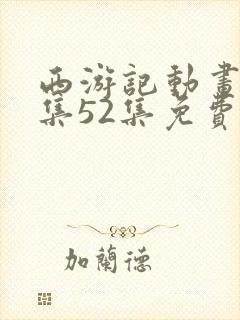 西游記動畫
集52集免費
加蘭德